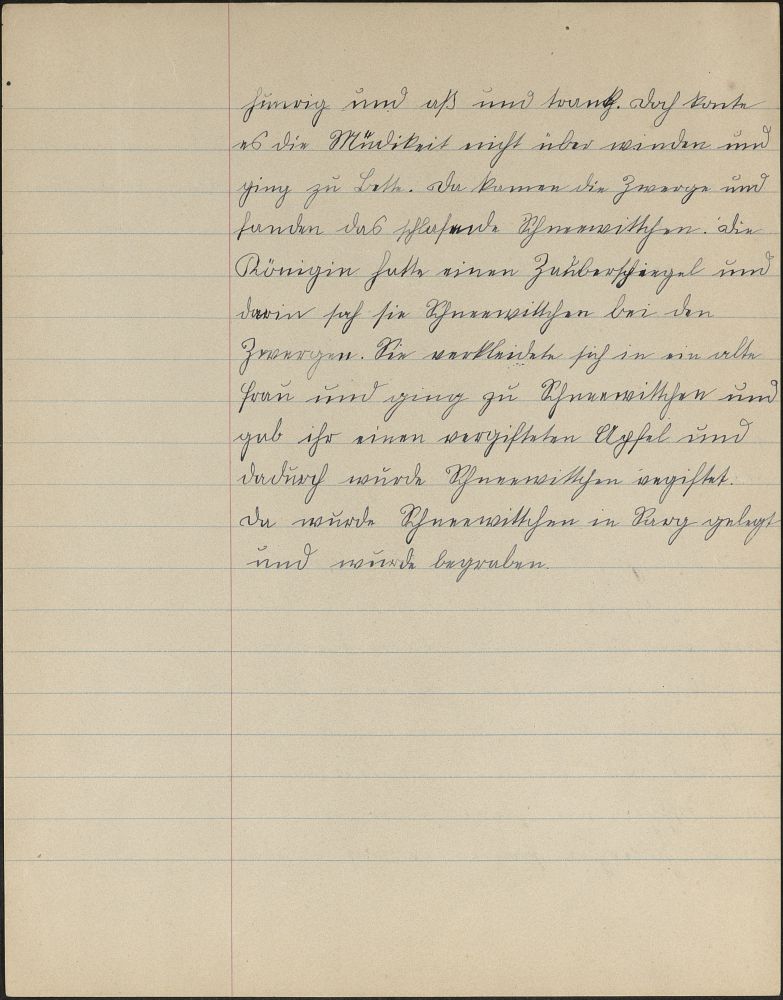 hunrig und aß und trank. Doch konte
es die Müdikeit nicht über winden und
ging zu Bette. Da kamen die Zwerge und
fanden das schlafende Schneewittchen. Die
Königin hatte einen Zauberspiegel und
darin sah sie Schneewittchen bei den
Zwergen. Sie verkleidete sich in ein alte
Frau und ging zu Schneewittchen und
gab ihr einen vergifteten Apfel und
dadurch wurde Schneewittchen vegiftet.
Da wurde Schneewittchen in Sarg gelegt
und wurde begraben.